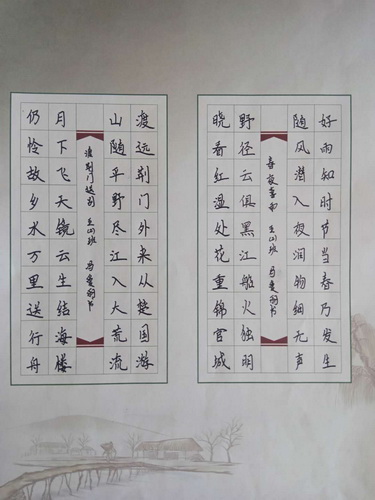 好雨知时节当春乃发生
随风潜入夜润物细无声
春夜喜雨 山班 马爱书
野径云俱黑江船火独明
晓看红湿处花重锦官城
渡远荆门外来从楚国游
山随平野尽江入大荒流
渡荆门送别 山班 马爱书
月下飞天镜云生结海楼
仍怜故乡水万里送行舟